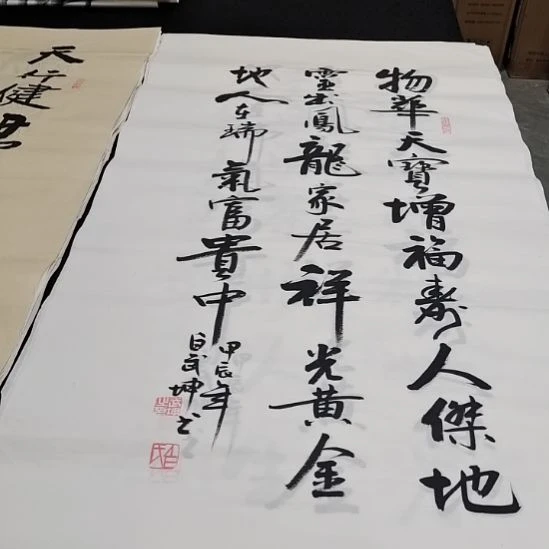 物華天寶增福壽人傑地
靈出鳳龍家居祥光黃金
地人在瑞氣富貴中
甲辰年
白武坤书
天行健君